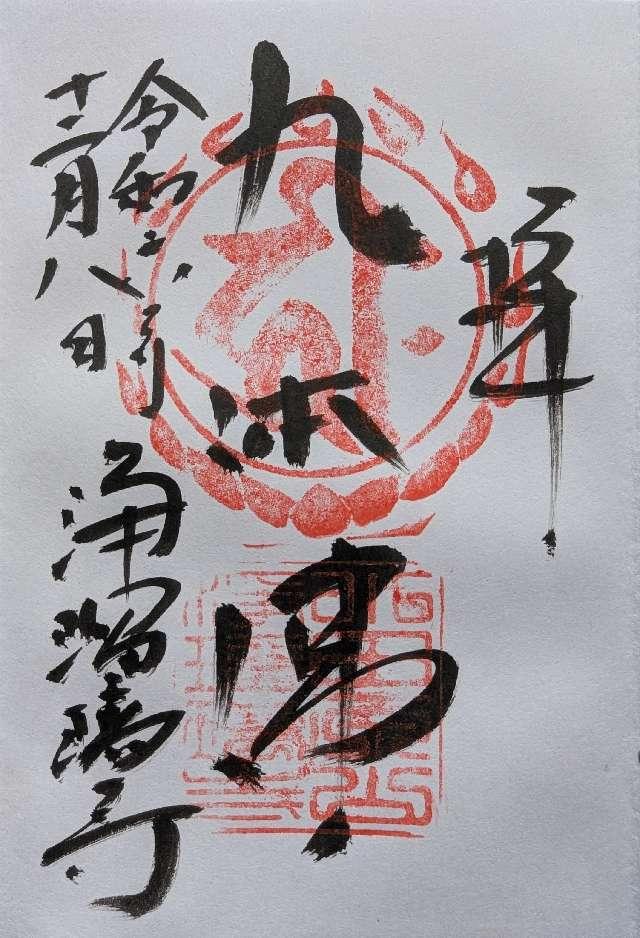 拝
九体佛
令和六年
十二月八日
浄瑠璃寺